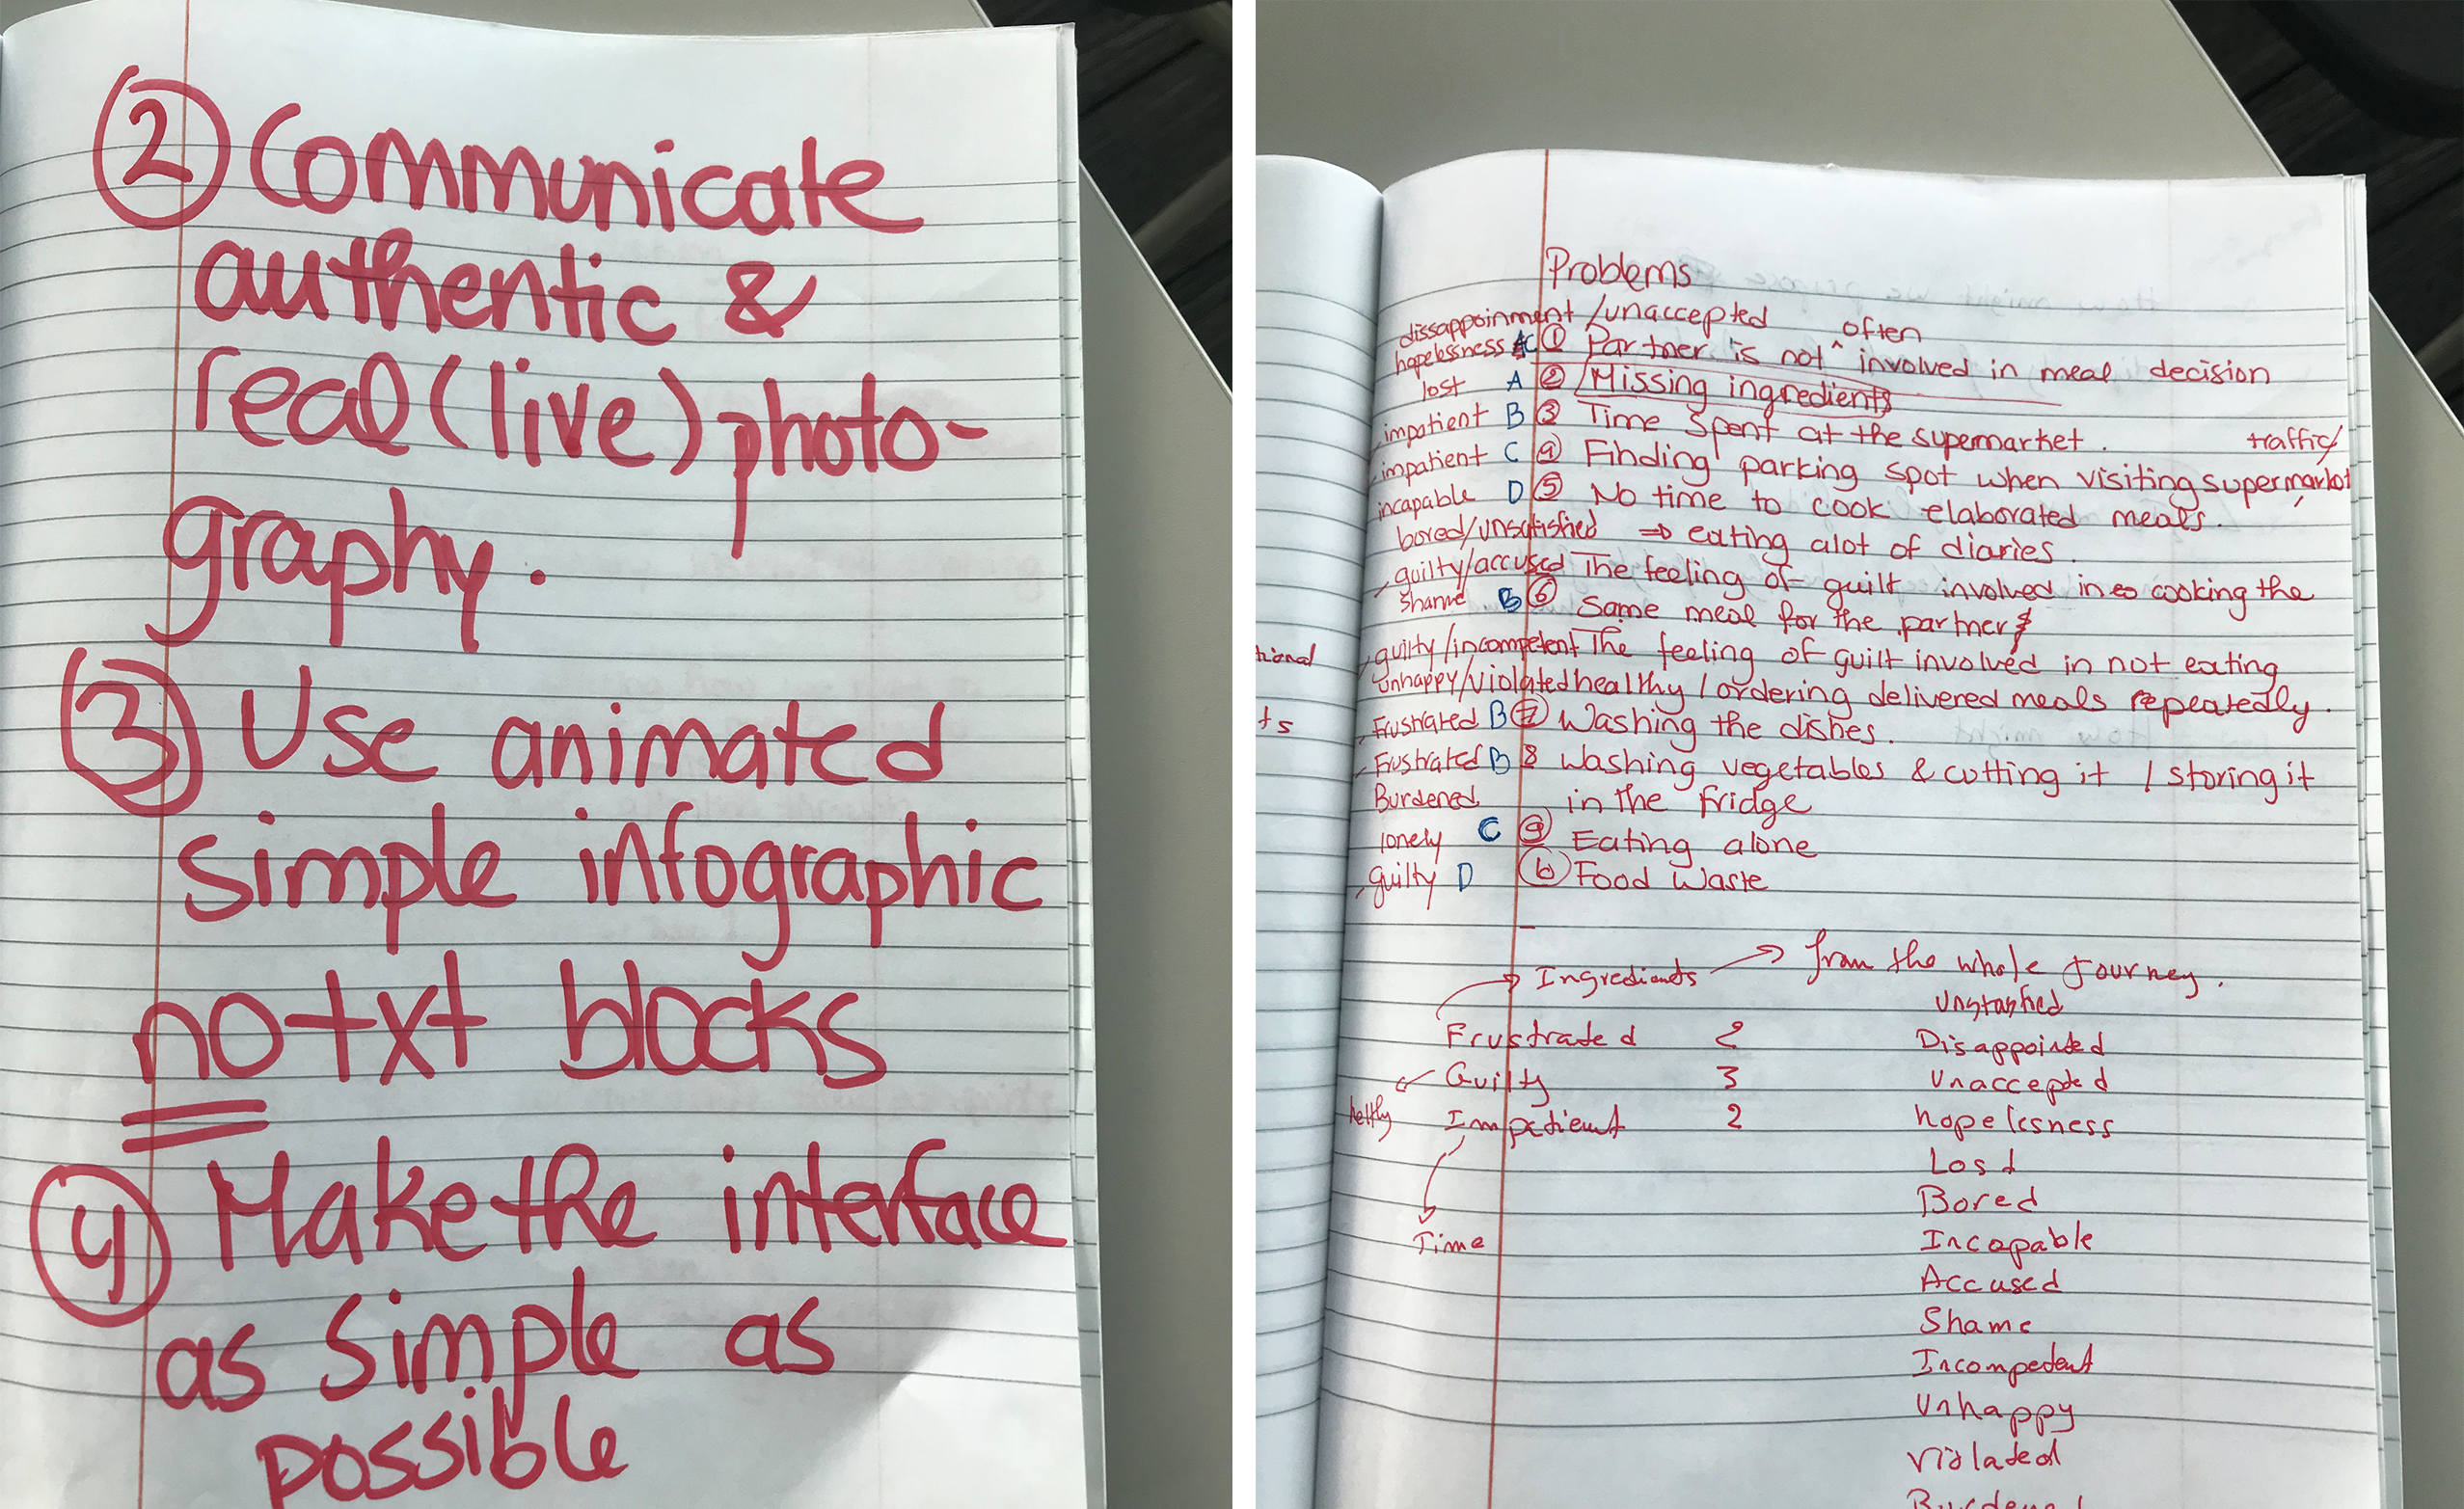 ② Communicate
authentic &
real (live) photo-
graphy.
③ Use animated
simple infographic
no txt blocks
④ Make the interface
as simple as
possible
Problems
dissappoinment /unaccepted often
hopelessness C ① Partner is not ^ involved in meal decision
lost A ② Missing ingredients
impatient B ③ Time spent at the supermarket. traffic/
impatient C ④ Finding parking spot when visiting supermarket
incapable D ⑤ No time to cook elaborated meals.
bored/unsatisfied ⇒ eating alot of diaries.
guilty/accused The feeling of guilt involved in cooking the
shame B ⑥ same meal for the partner &
tional guilty/incompetent The feeling of guilt involved in not eating
unhappy/violated healthy / ordering delivered meals repeatedly.
ts Frustrated B ⑦ Washing the dishes.
Frustrated B 8 Washing vegetables & cutting it / storing it
Burdened in the fridge
lonely C ⑨ Eating alone
guilty D Food Waste
Ingredients → from the whole journey.
Unstasfied
Frustrated 2 Disappointed
Guilty 3 Unaccepted
Impatient 2 hopelesness
Lost
Bored
Time Incapable
Accused
Shame
Incompetent
Unhappy
Violated